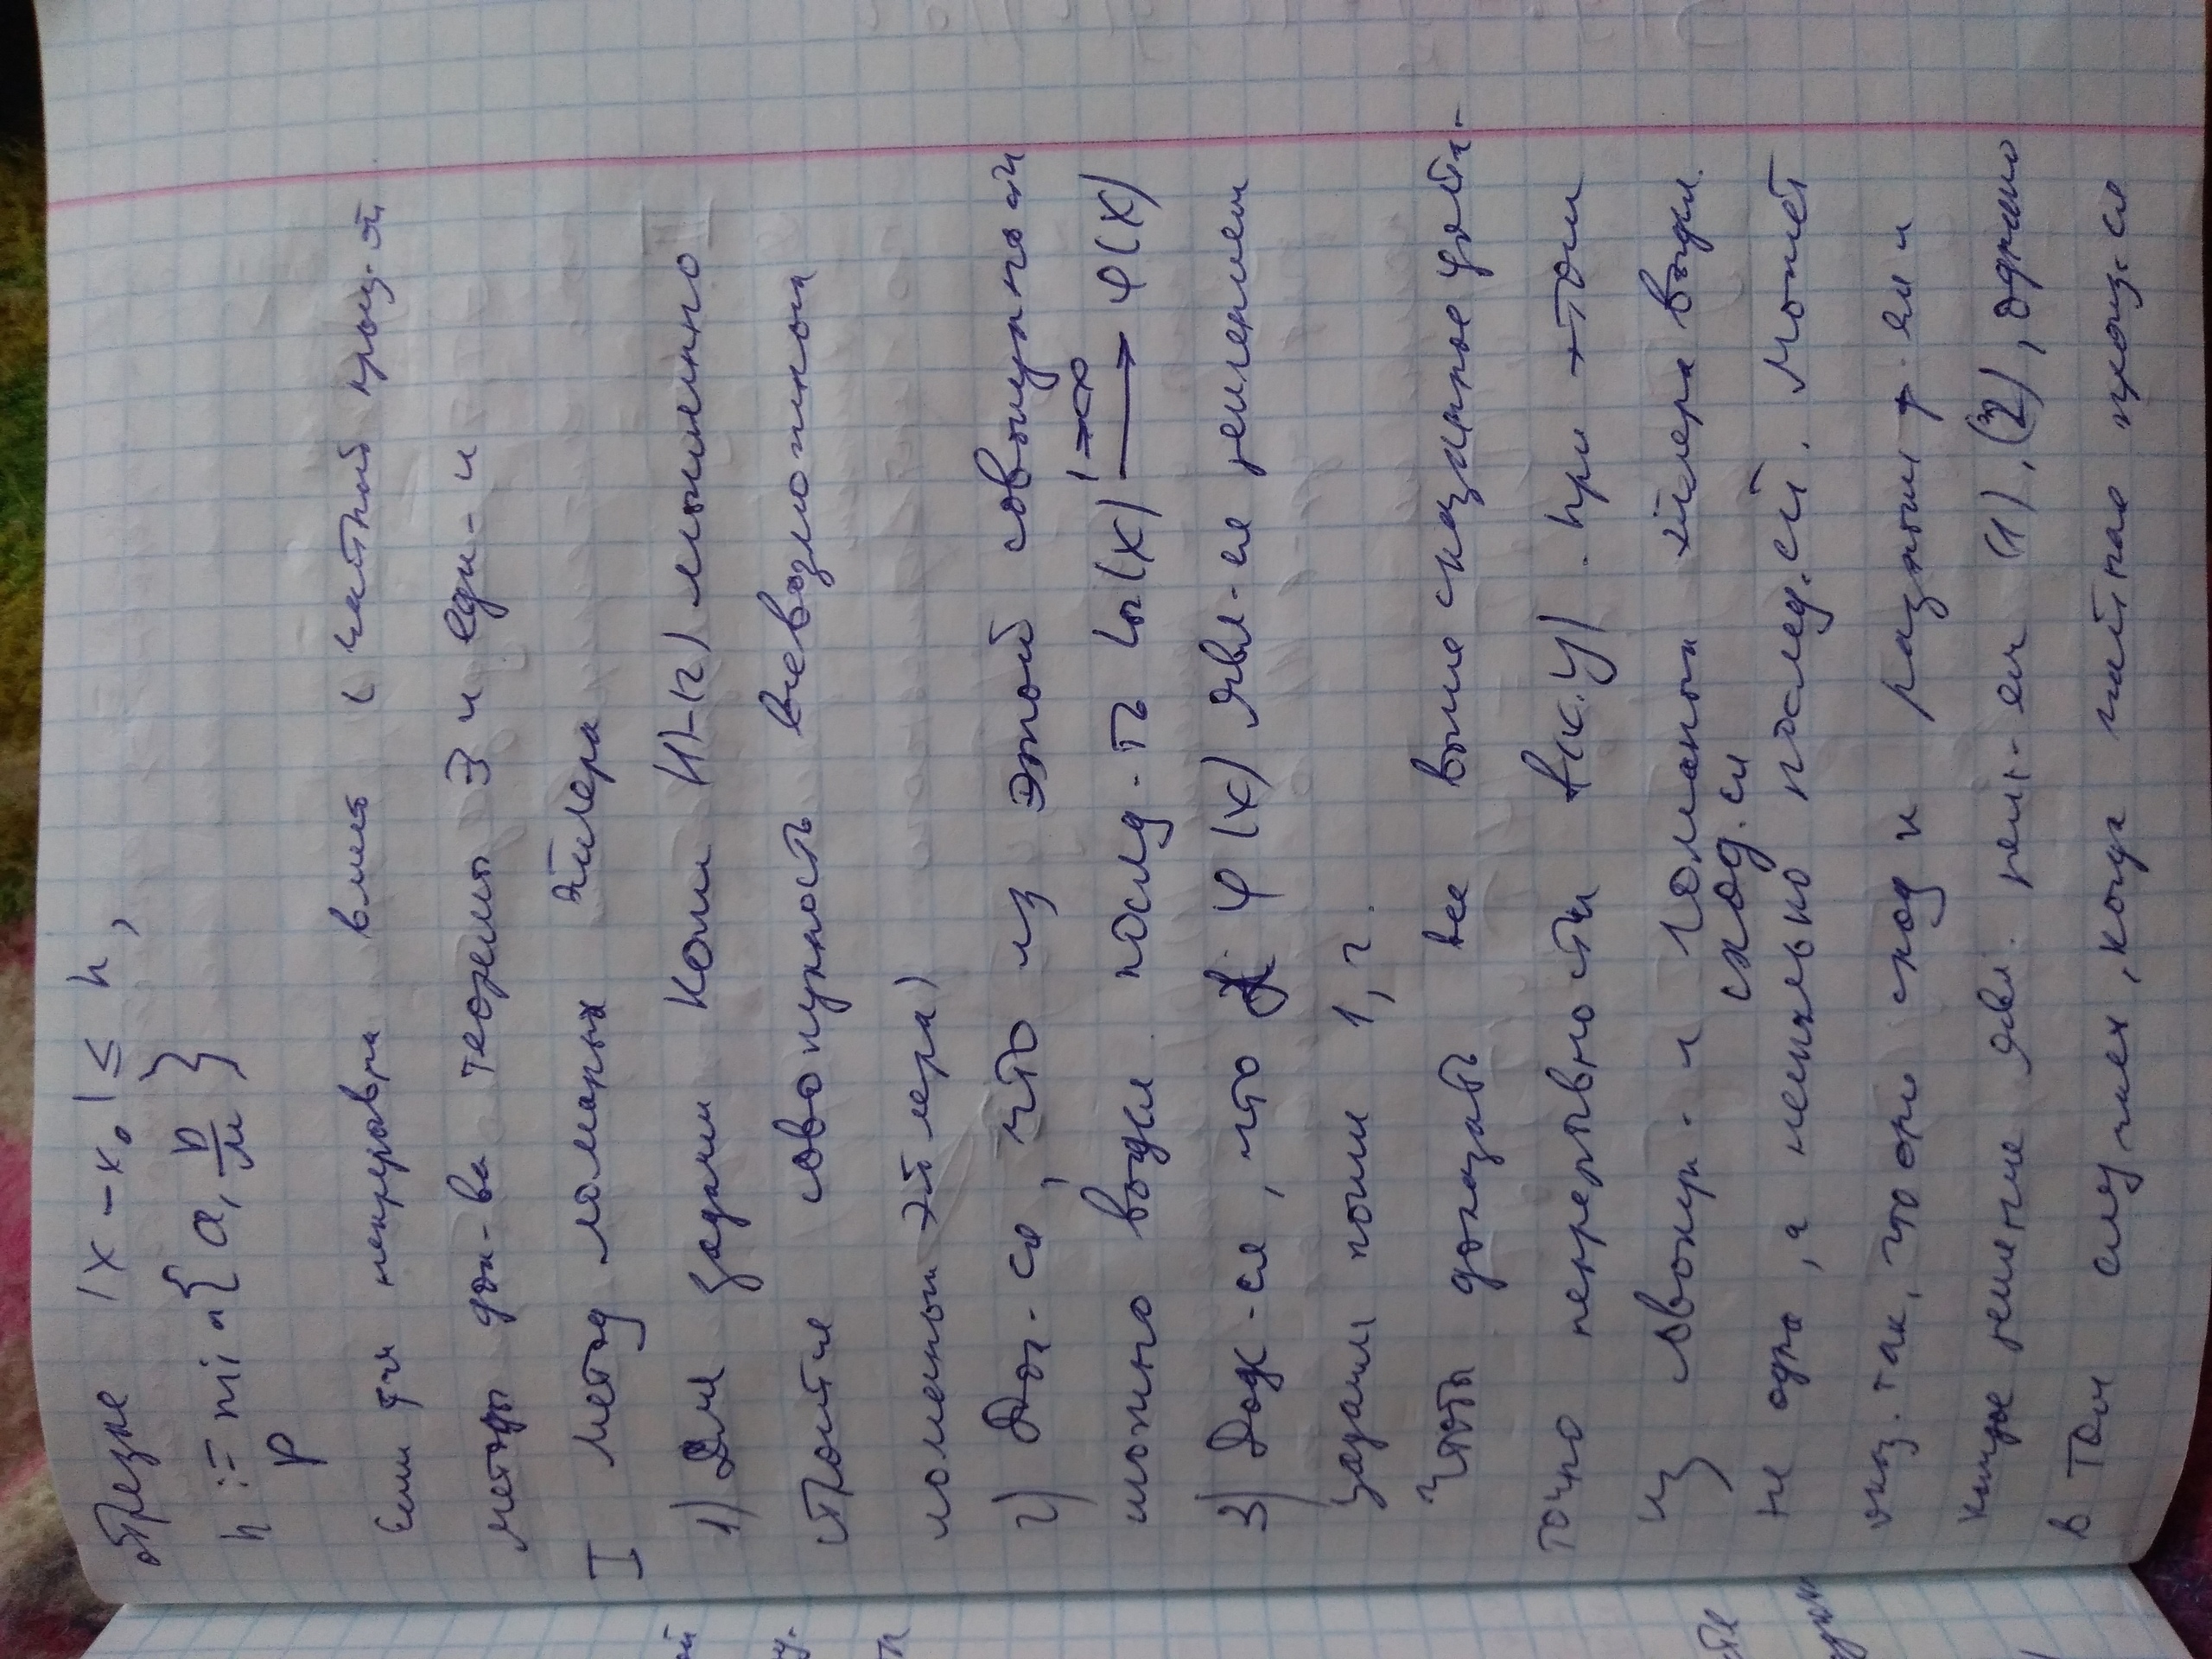 отрезке |x - x₀| ≤ h,
h := min{a, b/м}
р
Если ф-ия непрерывна вмест с частной произ-й
методы док-ва теоремы ∃ и един-и
I Метод ломаных Эйлера
1) Для задачи Коши (1)-(2) мысленно
строится совокупность всевозможных
ломаных Эйлера)
2) Док-ся, что из этой совокупности
можно выдел. послед-ть (x) → φ(x)
3) Док-ся, что φ(x) явл-ся решением
задачи коши 1, 2.
Чтобы доказать все выше сказанное доста-
точно непрерывности f(x,y). при этом
из совокуп-и ломаных Эйлера выдел.
сход.ся
не одна, а несколько послед.ей. Может
оказ. так, что они сход к разным ф-ям и
каждое решение явл. реш-ем (1), (2), однако
в том случаех, когда частная произ-ся
ой
у.